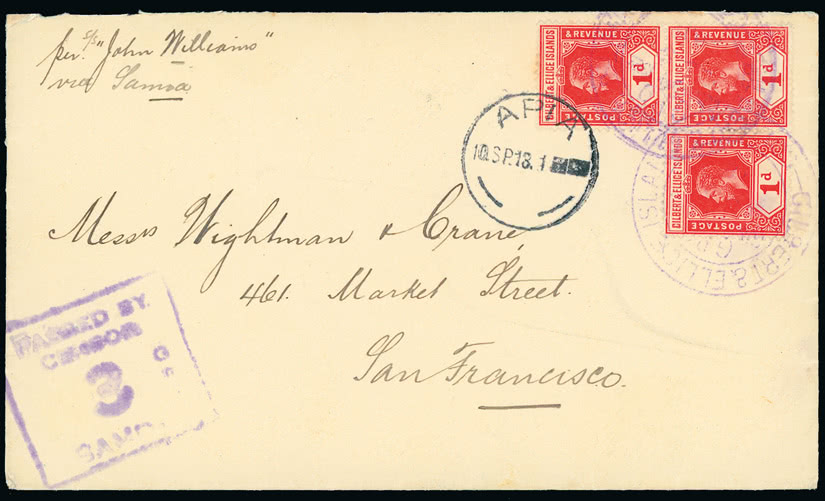 per s/s "John Williams"
via Samoa
GILBERT & ELLICE ISLANDS
& REVENUE
POSTAGE
1d
GILBERT & ELLICE ISLANDS
& REVENUE
POSTAGE
1d
GILBERT & ELLICE ISLANDS
& REVENUE
POSTAGE
1d
GILBERT & ELLICE ISLA
APIA
10.SP.18.1
Messrs Wightman & Crane,
461. Market Street.
San Francisco.
PASSED BY
CENSOR
3
SAMO